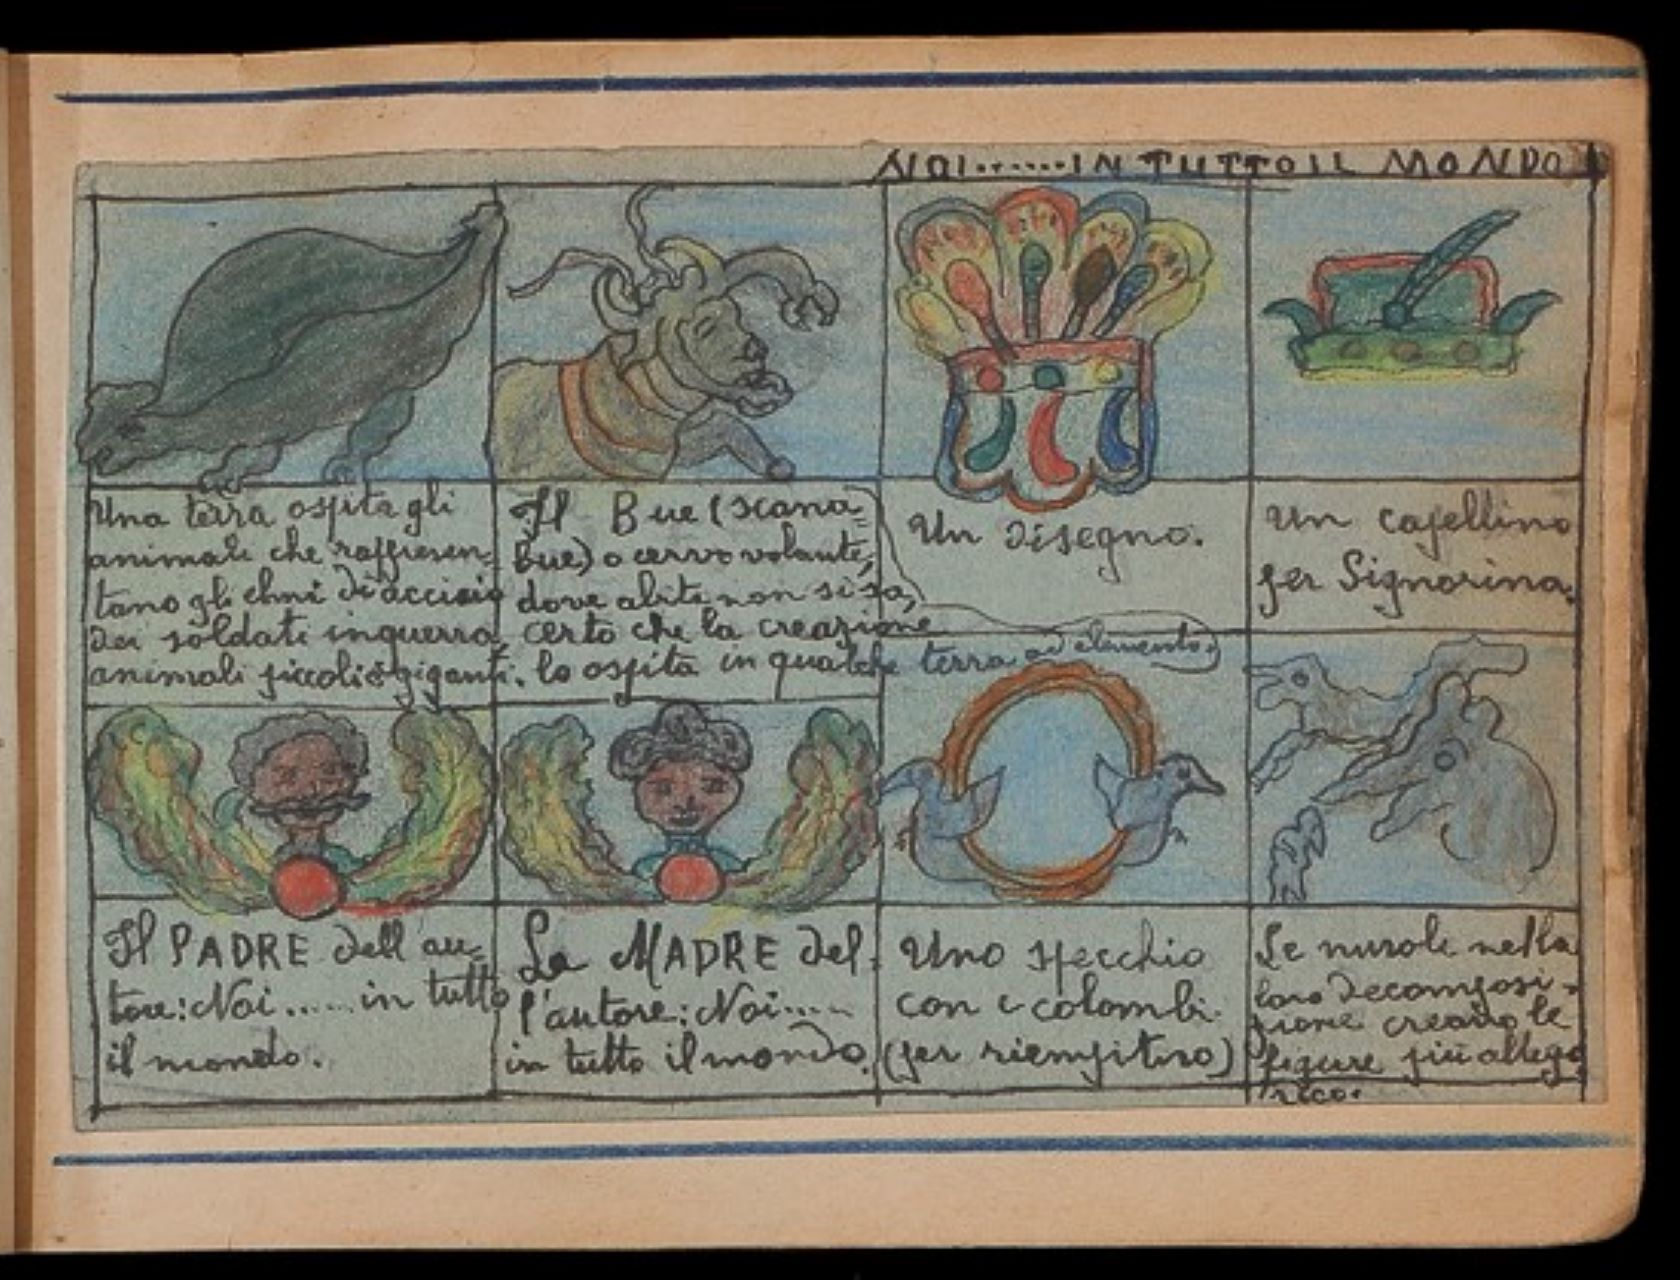 NOI.......IN TUTTO IL MONDO
Una terra ospita gli
animali che rappresen-
tano gli elmi di acciaio
dei soldati in guerra,
animali piccoli e giganti.
Il Bue (scana-
Bue) o cervo volante,
dove abita non si sa,
certo che la creazione
lo ospita in qualche terra od elemento.
Un disegno.
Un capellino
per Signorina.
Il PADRE dell'au-
tore: Noi ..... in tutto
il mondo.
La MADRE del-
l'autore: Noi.....
in tutto il mondo.
Uno specchio
con i colombi
(per riempitivo)
Le nuvole nella
loro decomposi-
zione creano le
figure più allego
rico.